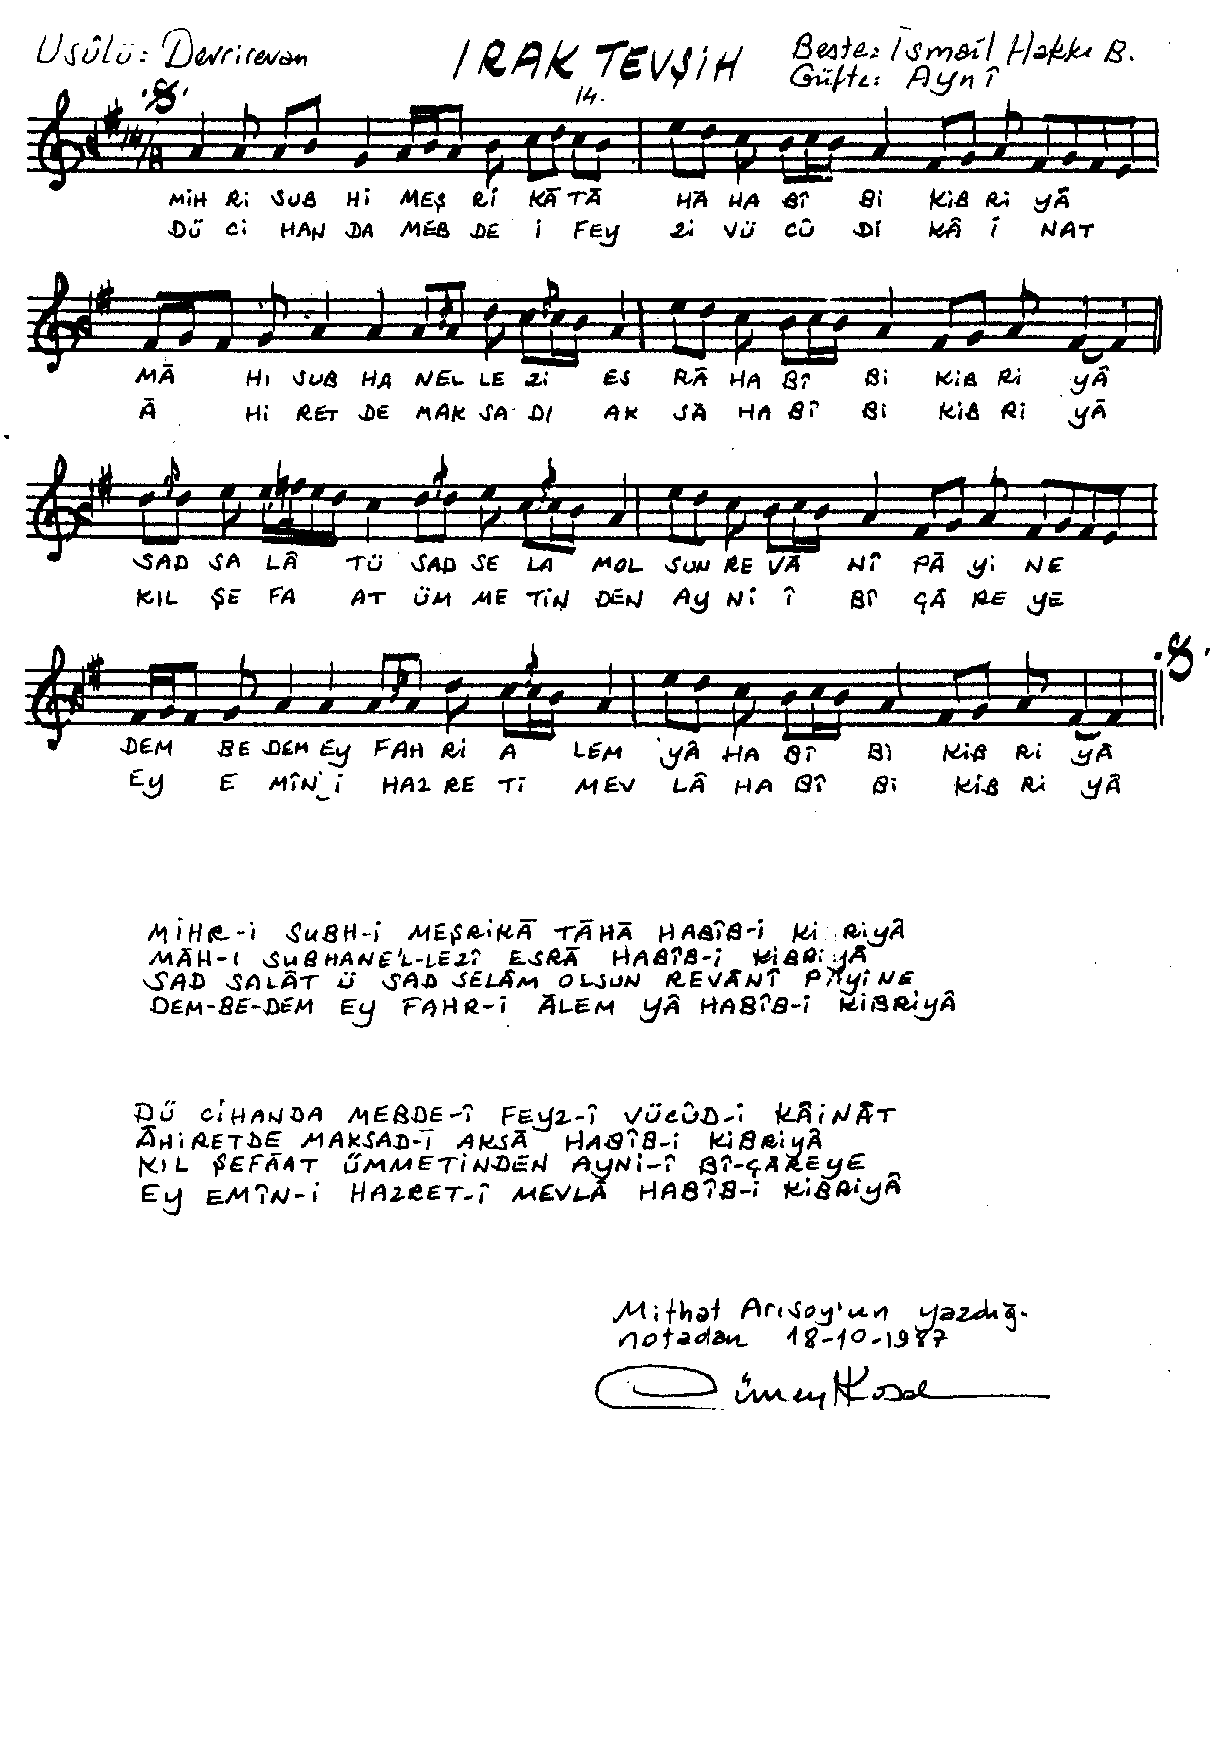 Usûlü: Devrirevan
IRAK TEVŞİH
Beste: İsmail Hakkı B.
Güfte: Aynî
14.
MİH Rİ SUB Hİ MEŞ Rİ KĀ TĀ HĀ HA BÎ Bİ KİB Rİ YÂ
DÜ Cİ HAN DA MEB DE İ FEY Zİ VÜ CÛ Dİ KÂ İ NAT
MĀ HI SUB HA NEL LE Zİ ES RĀ HA BÎ Bİ KİB Rİ YÂ
Ā Hİ RET DE MAK SA DI AK SĀ HA BÎ Bİ KİB Rİ YÂ
SAD SA LÂ TÜ SAD SE LA MOL SUN RE VĀ NÎ PĀ Yİ NE
KIL ŞE FA AT ÜM ME TİN DEN AY Nİ Î BÎ ÇĀ RE YE
DEM BE DEM EY FAH Rİ A LEM YÂ HA BÎ Bİ KİB Rİ YÂ
EY E MÎN İ HAZ RE Tİ MEV LÂ HA BÎ Bİ KİB Rİ YÂ
MİHR-İ SUBH-İ MEŞRİKĀ TĀHĀ HABÎB-İ Kİ RİYÂ
MĀH-I SUBHANE'L-LEZÎ ESRĀ HABÎB-İ KİBRİYÂ
SAD SALÂT Ü SAD SELÂM OLSUN REVĀNÎ PĀYİNE
DEM-BE-DEM EY FAHR-İ ĀLEM YÂ HABÎB-İ KİBRİYÂ
DÜ CİHANDA MEBDE-Î FEYZ-Î VÜCÛD-İ KÂİNÂT
ĀHİRETDE MAKSAD-Î AKSĀ HABÎB-İ KİBRİYÂ
KIL ŞEFĀAT ÜMMETİNDEN AYNİ-Î BÎ-ÇĀREYE
EY EMÎN-İ HAZRET-Î MEVLĀ HABÎB-İ KİBRİYÂ
Mithat Arısoy'un yazdığ.
notadan 18-10-1987
Cüneyt Kosal